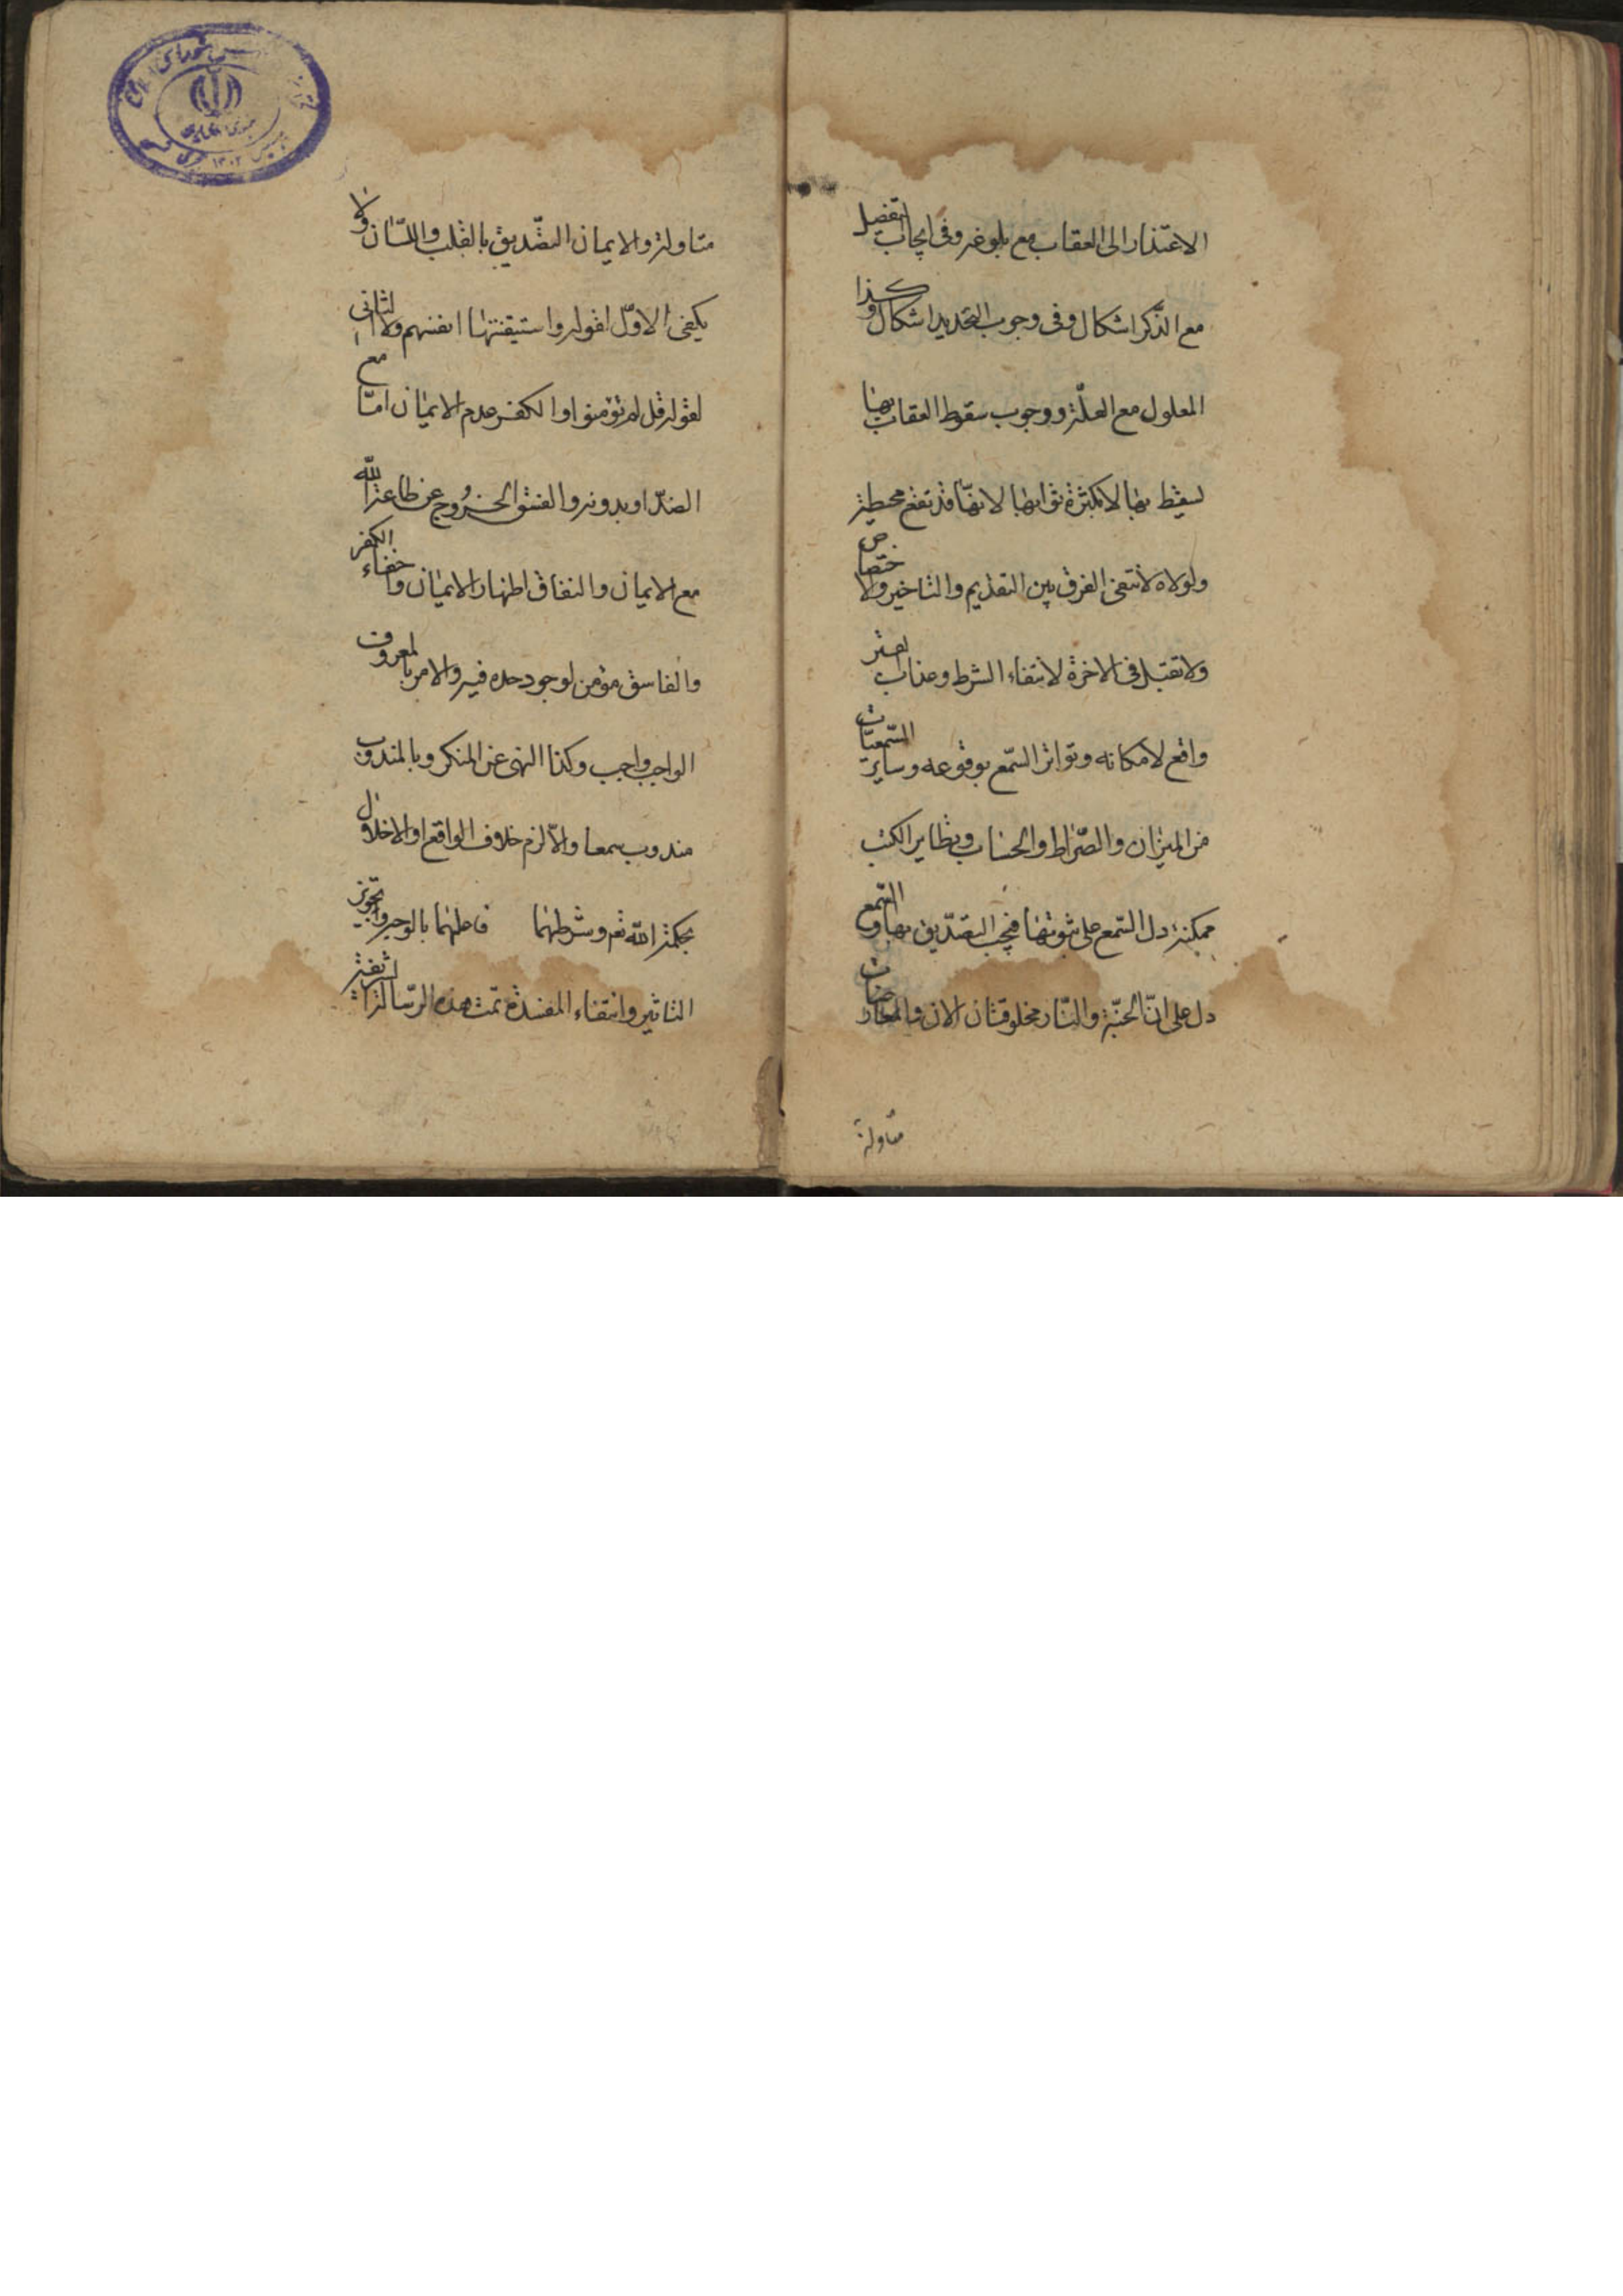 الاعتذار الى العقاب مع بلوغه وفى ايجاب التفصيل
مع الذّكر اشكال وفى وجوب التجديد اشكال وكذا
المعلول مع العلّة ووجوب سقوط العقاب بها
يسقط بها لا بكثرة ثوابها لانهّا قد تقع محبطة
ولولاه لانتفى الفرق بين التقديم والتاخير ولا اختصاص
ولا تقبل فى الاخرة لانتفاء الشرط وعذاب القبر
واقع لامكانه وتواتر السّمع بوقوعه وساير السّمعيّات
من الميزان والصّراط والحساب وتطاير الكتب
ممكنة دل السّمع على ثبوتها فيجب التصّديق بها والسّمع
دل على انّ الجنّة والنّار مخلوقتان الان والمعارضات
متاولة
متاولة والايمان التصّديق بالقلب واللّسان ولا
يكفى الاوّل لقوله واستيقنتها انفسهم ولا الثانى
لقوله قل لم تؤمنوا والكفر عدم الايمان امّا مع
الضدّ او بدونه والفسق الخروج عن طاعة الله
مع الايمان والنفاق اظهار الايمان واخفاء الكفر
والفاسق مؤمن لوجود حده فيه والامر بالمعروف
الواجب واجب وكذا النهى عن المنكر وبالمندوب
مندوب سمعا والاّ لزم خلاف الواقع او الاخلال
بحكمة الله تع وشرطهما فاعلهما بالوجه وتجويز
التاثير وانتفاء المفسدة تمت هذه الرّسالة الشريفة